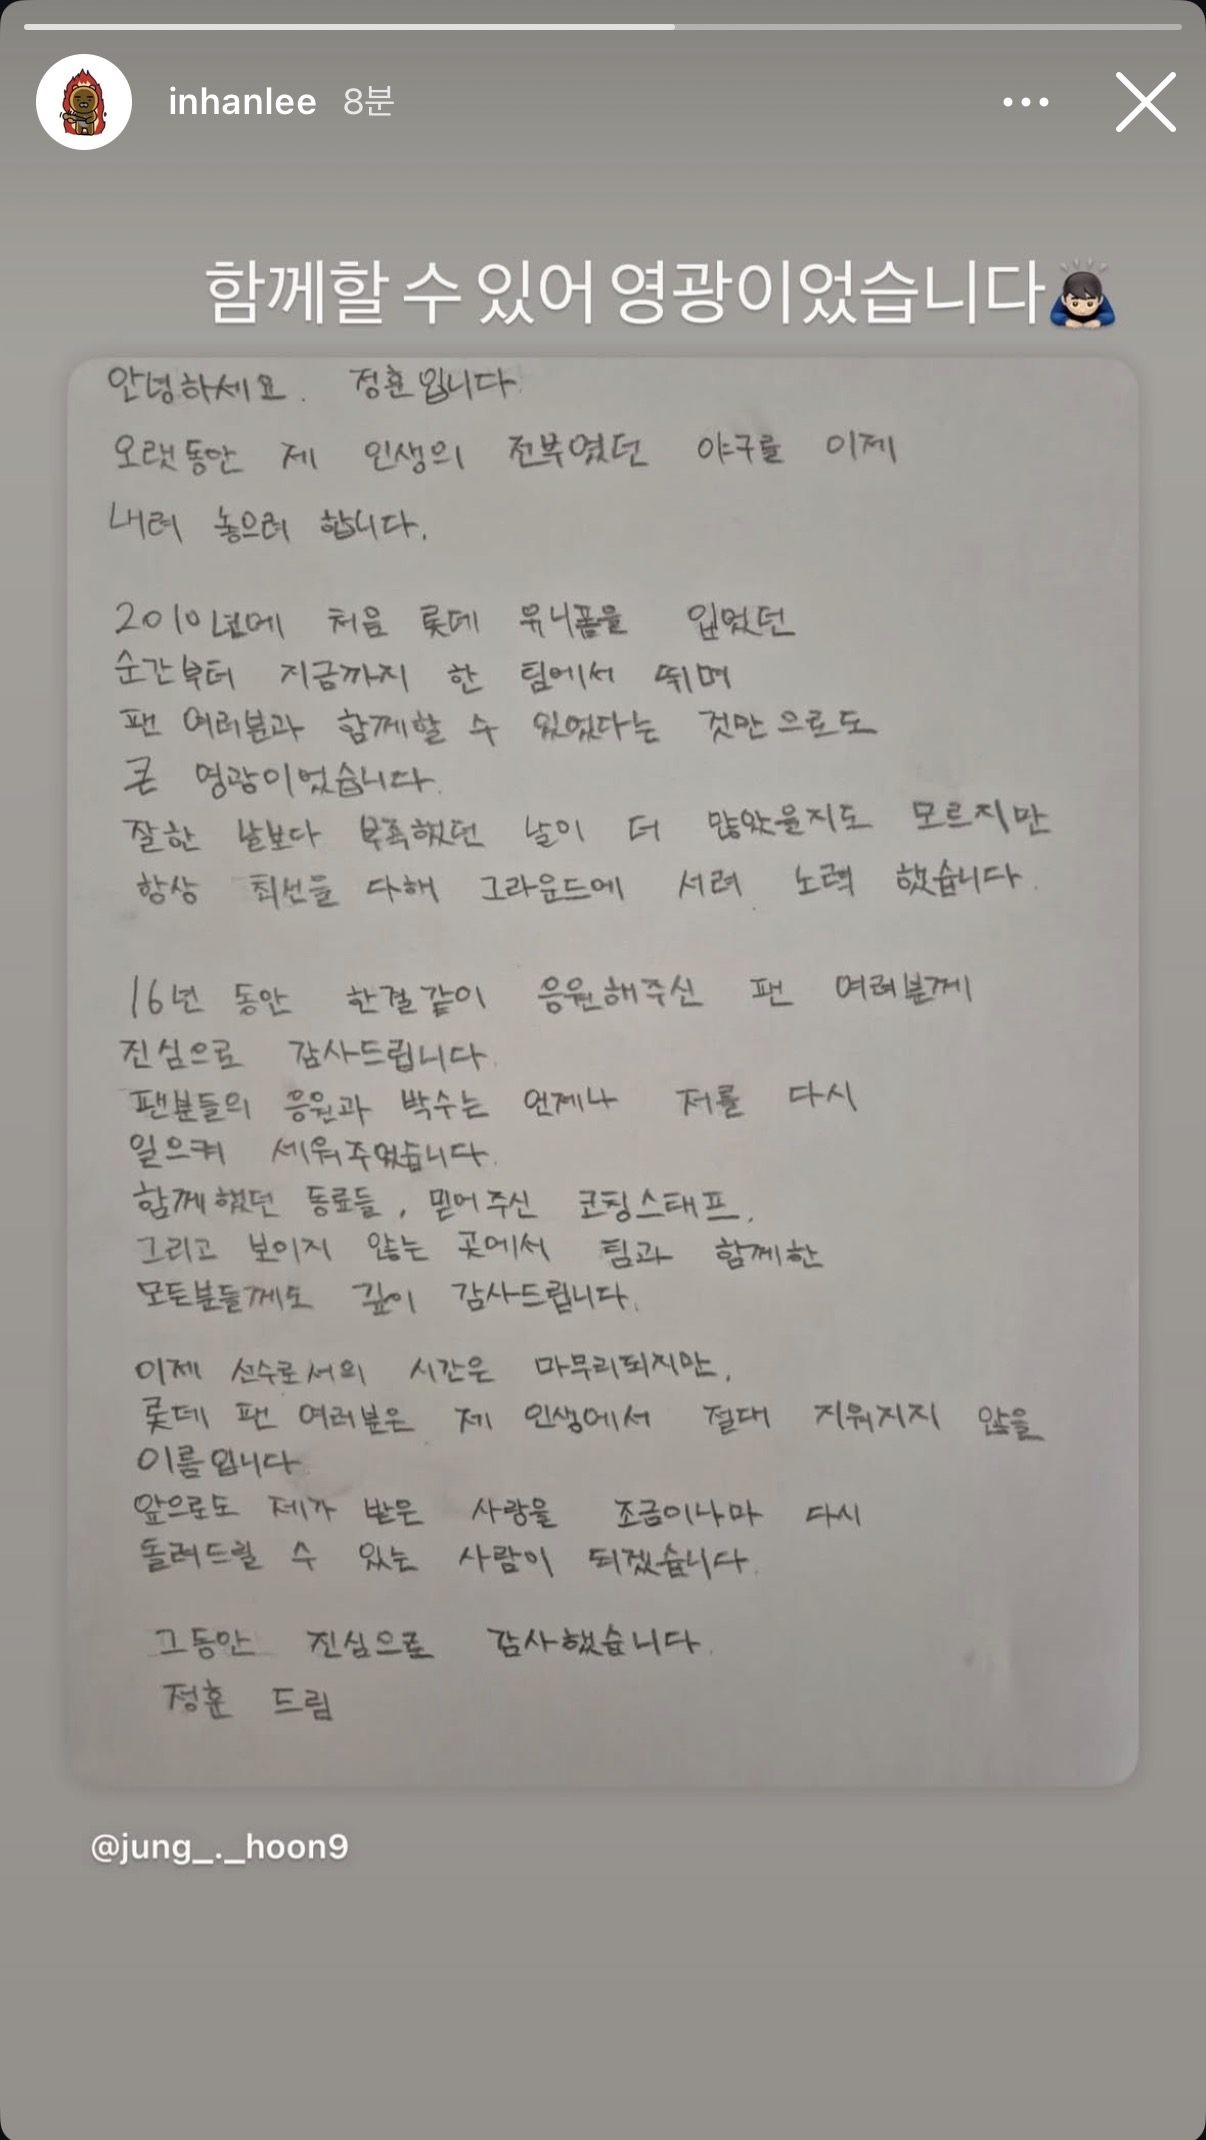 inhanlee 8분
함께할 수 있어 영광이었습니다🙇🏻‍♂️
안녕하세요. 정훈입니다.
오랫동안 제 인생의 전부였던 야구를 이제
내려 놓으려 합니다.
2010년에 처음 롯데 유니폼을 입었던
순간부터 지금까지 한 팀에서 뛰며
팬 여러분과 함께할 수 있었다는 것만으로도
큰 영광이었습니다.
잘한 날보다 부족했던 날이 더 많았을지도 모르지만
항상 최선을 다해 그라운드에 서려 노력 했습니다.
16년 동안 한결같이 응원해주신 팬 여러분께
진심으로 감사드립니다.
팬분들의 응원과 박수는 언제나 저를 다시
일으켜 세워주었습니다.
함께했던 동료들, 믿어주신 코칭스태프,
그리고 보이지 않는 곳에서 팀과 함께한
모든분들께도 깊이 감사드립니다.
이제 선수로서의 시간은 마무리되지만,
롯데 팬 여러분은 제 인생에서 절대 지워지지 않을
이름입니다.
앞으로도 제가 받은 사랑을 조금이나마 다시
돌려드릴 수 있는 사람이 되겠습니다.
그동안 진심으로 감사했습니다.
정훈 드림
@jung_._hoon9